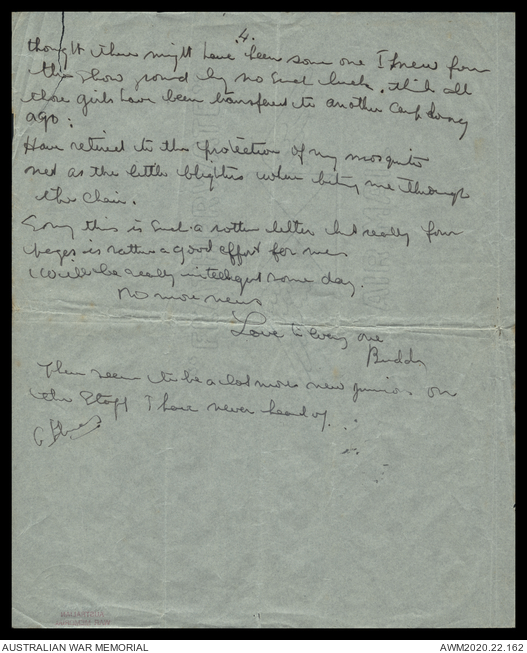 .4.
thought there might have been some one I knew from
the show ground by no such luck. think all
those girls have been transfered to another camp long
ago:
Have retired to the protection of my mosquito
net as the little blighters were biting me through
the chair.
Sorry this is such a rotten letter but really four
pages is rather a good effort for me
I will be really intelligent some day.
No more news
Love to every one
Buddy
There seems to be a lot more new juniors on
the Staff I have never heard of.
AUSTRALIAN WAR MEMORIAL
AWM2020.22.162